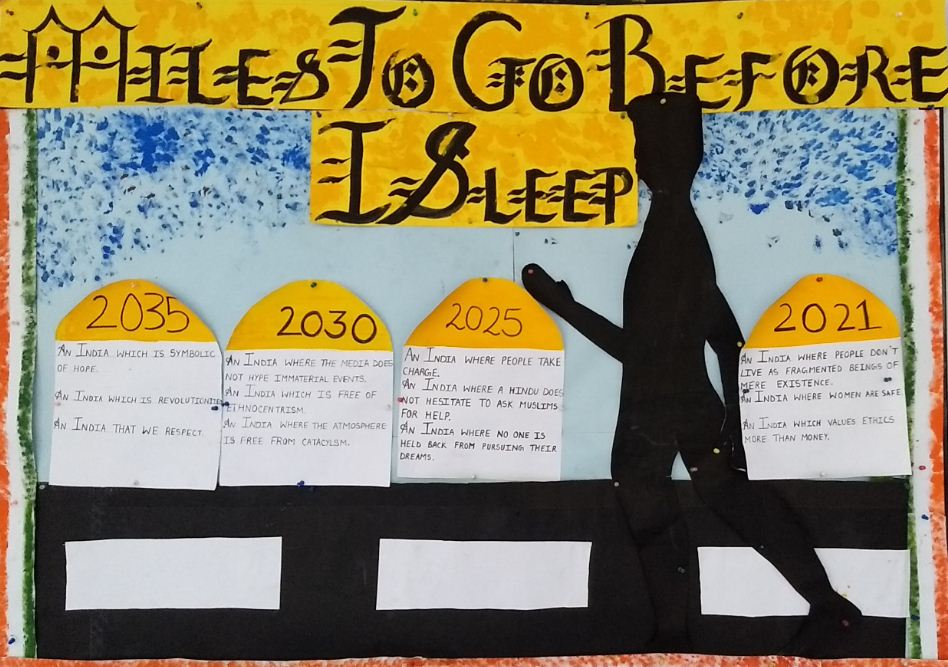 MILES TO GO BEFORE
I SLEEP
2035
AN INDIA WHICH IS SYMBOLIC
OF HOPE.
AN INDIA WHICH IS REVOLUTIONIZE
AN INDIA THAT WE RESPECT.
2030
AN INDIA WHERE THE MEDIA DOES
NOT HYPE IMMATERIAL EVENTS.
AN INDIA WHICH IS FREE OF
ETHNOCENTRISM.
AN INDIA WHERE THE ATMOSPHERE
IS FREE FROM CATACLYSM.
2025
AN INDIA WHERE PEOPLE TAKE
CHARGE.
AN INDIA WHERE A HINDU DOES
NOT HESITATE TO ASK MUSLIMS
FOR HELP.
AN INDIA WHERE NO ONE IS
HELD BACK FROM PURSUING THEIR
DREAMS.
2021
AN INDIA WHERE PEOPLE DON'T
LIVE AS FRAGMENTED BEINGS OF
MERE EXISTENCE.
AN INDIA WHERE WOMEN ARE SAFE
AN INDIA WHICH VALUES ETHICS
MORE THAN MONEY.